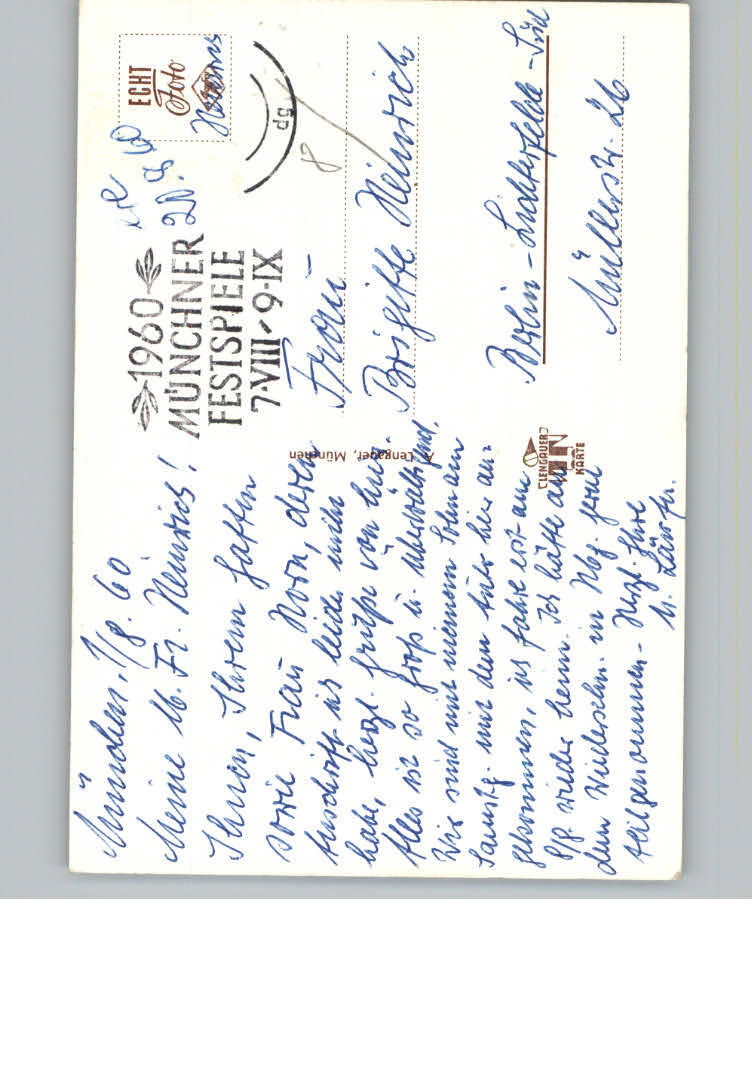 München, 1/8. 60
Meine lb. Fr. Heinrich!
Ihnen, Ihrem Gatten
sowie Frau Horn, deren
Anschrift ich leider nicht
habe, herzl. Grüße von hier.
Alles ist so groß u. überwältigend.
Wir sind mit meinem Sohn am
Samstg. mit dem Auto hier an=
gekommen, ich fahre erst am
wieder heim. Ich hätte an
dem Wiedersehn. in Nbg. gerne
teilgenommen - Herzl. Ihre
A. Lengauer, München
CLENGAUER
KARTE
1960
MÜNCHNER
FESTSPIELE
7·VIII - 9·IX
dg
8
20. 8. 60
ECHT
Foto
Frau
Brigitte Heinrich
Berlin - Lichterfelde - Süd
Müllerstr. 26